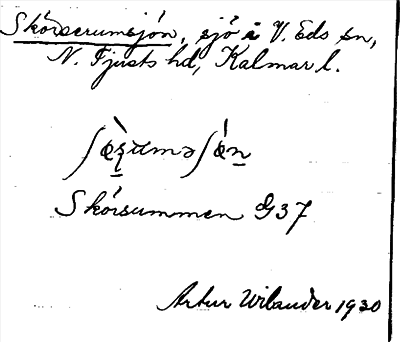 Skörserumsjön, sjö i V. Eds sn,
N. Tjusts hd, Kalmar l.
Skörsummen G37
Artur Wilander 1930